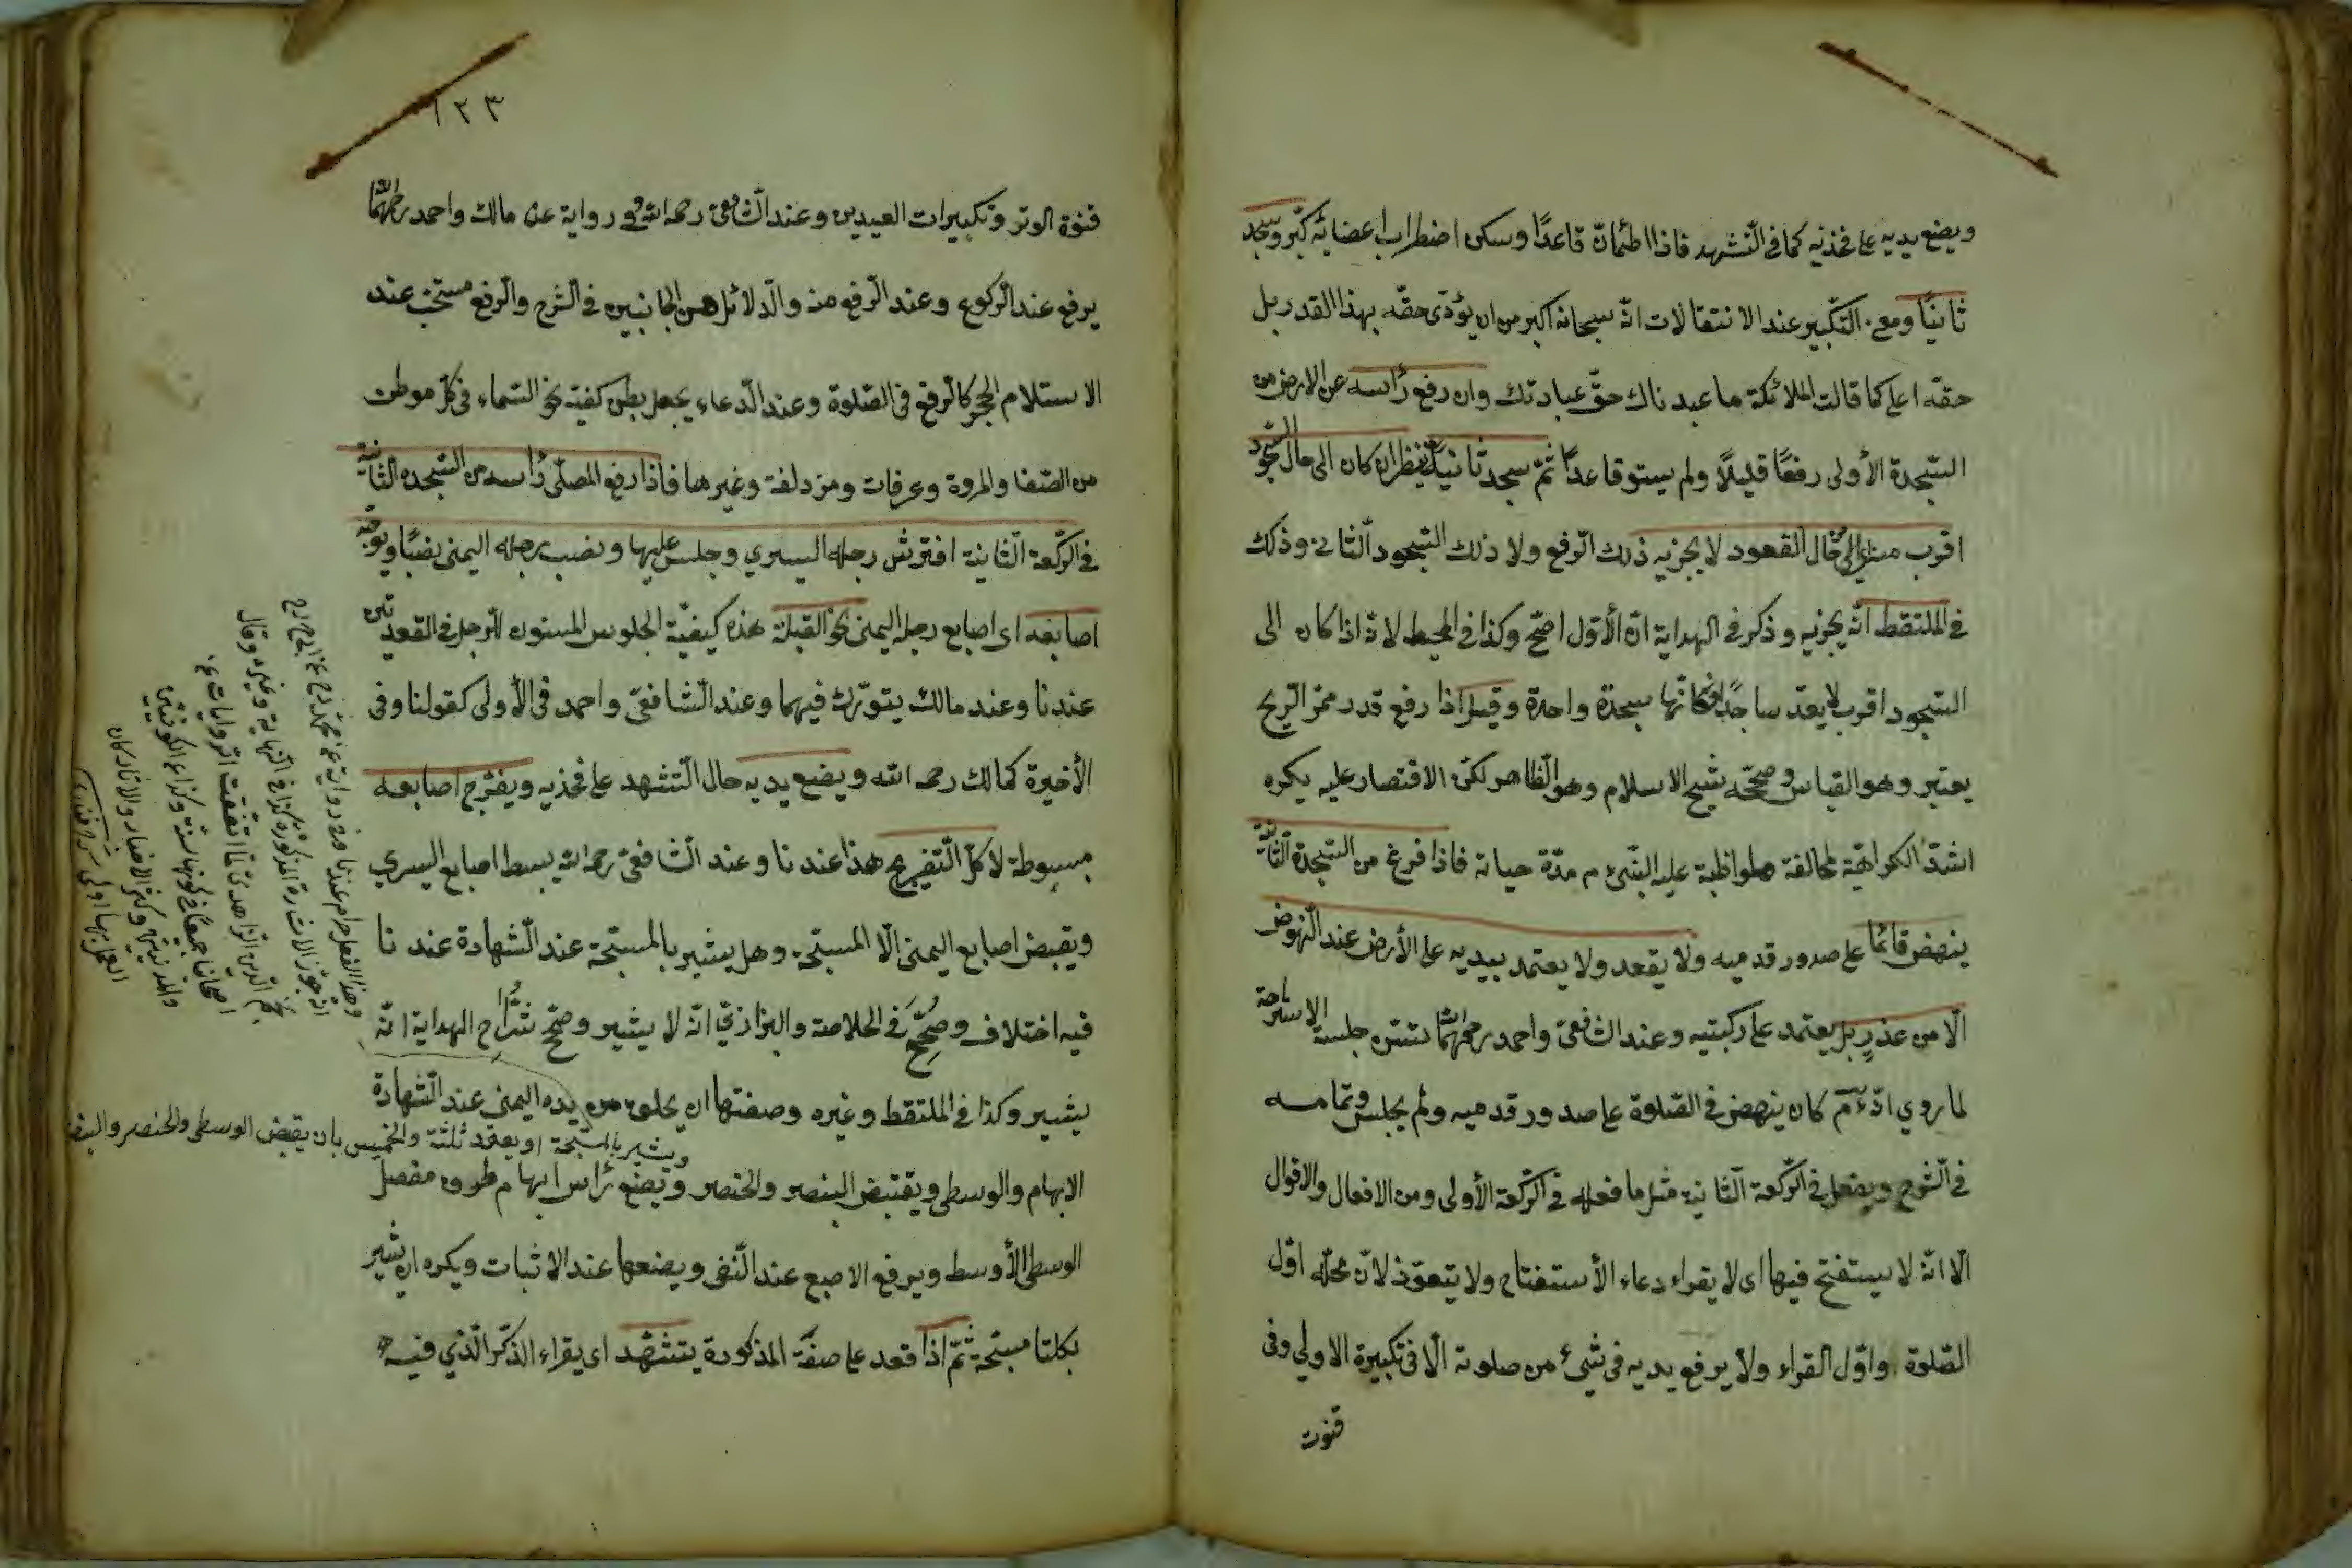 ويضع يديه على فخذيه كما في التشهد فاذا اطمأن قاعدًا وسكن اضطراب اعضائه كبّر وسجد
ثانيًا ومعنى التكبير عند الانتقالات انّه سبحانه اكبر من ان يؤدّى حقّه بهذا القدر بل
حقّه اعلى كما قالت الملائكة ما عبدناك حقّ عبادتك وان رفع رأسه عن الارض من
السّجدة الأولى رفعًا قليلًا ولم يستو قاعدًا ثمّ سجد ثانيًا ينظر ان كان الى حال السّجود
اقرب منه الى حال القعود لا يجزيه ذلك الرّفع ولا ذلك السّجود الثّاني وذكر
في الملتقط انّه يجزيه وذكر في الهداية انّ الأوّل اصحّ وكذا في المحيط لانّه اذا كان الى
السّجود اقرب لا يعدّ ساجدًا فكانّها سجدة واحدة وقيل اذا رفع قدر ممرّ الرّيح
يعتبر وهو القياس وصحّحه شيخ الاسلام وهو الظاهر لكن الاقتصار عليه يكره
اشدّ الكراهة لمخالفة لمواظبة عليه النّبيّ م مدّة حياته فاذا فرغ من السّجدة الثّانية
ينهض قائمًا على صدور قدميه ولا يقعد ولا يعتمد بيديه على الأرض عند النّهوض
الّا من عذر بل يعتمد على ركبتيه وعند الشافعيّ واحمد رحمهما الله تسنّ جلسة الاستراحة
لما روي انّه عم كان ينهض في الصّلوة على صدور قدميه ولم يجلس وتمامه
في الشّرح ويفعل في الرّكعة الثّانية مثل ما فعله في الرّكعة الأولى من الافعال والاقوال
الّا انّه لا يستفتح فيها اى لا يقراء دعاء الأستفتاح ولا يتعوّذ لانّ محلّه اوّل
الصّلوة واوّل القراء ولا يرفع يديه في شيء من صلوته الّا في تكبيرة الاولى وفى
قنوت
١٢٣
قنوة الوتر وتكبيرات العيدين وعند الشّافعيّ رحمه الله وفى رواية عن مالك واحمد رحمهما الله
يرفع عند الرّكوع وعند الرّفع منه والدّلائل من الجانبين في الشّرح والرّفع مستحبّ عند
الاستلام الحجر كالرّفع في الصّلوة وعند الدّعاء يجعل بطن كفيه نحو السّماء فى كلّ موطن
من الصّفا والمروة وعرفات ومزدلفة وغيرها فاذا رفع المصلّى رأسه من السّجدة الثّانية
في الرّكعة الثّانية افترش رجله اليسري وجلس عليها ونصب رجله اليمنى نصبًا ويوجّه
اصابعه اى اصابع رجله اليمنى نحو القبلة هذه كيفيّة الجلوس المسنون للرجل في القعدتين
عندنا وعند مالك يتورّك فيهما وعند الشافعيّ واحمد فى الأولى كقولنا وفى
الأخيرة كمالك رحمه الله ويضع يديه حال التّشهد على فخذيه ويفرّج اصابعه
مبسوطة لا كلّ التّفريج هذا عندنا وعند الشّافعيّ رحمه الله يبسط اصابع اليسري
ويقبض اصابع اليمنى الّا المسبّحة وهل يشير بالمسبّحة عند الشّهادة عندنا
فيه اختلاف وصُحِّحَ في الخلاصة والبزازيّ انّه لا يشير وصحّح شُرّاح الهداية انّه
يشير وكذا في الملتقط وغيره وصفتها ان يحلق من يده اليمنى عند الشّهادة
ويشير بالمسبّحة او يعقد ثلثة والخمسين بان يقبض الوسطى والخنصر والبنصر
الابهام والوسطى ويقبض البنصر والخنصر ويضع رأس ابهام طرف مفصل
الوسطى الأوسط ويرفع الاصبع عند النّفى ويضعها عند الاثبات ويكره ان يشير
بكلتا مسبّحتيه ثمّ اذا قعد على صفة المذكورة يتشهّد اى يقراء الذّكر الّذي فيه